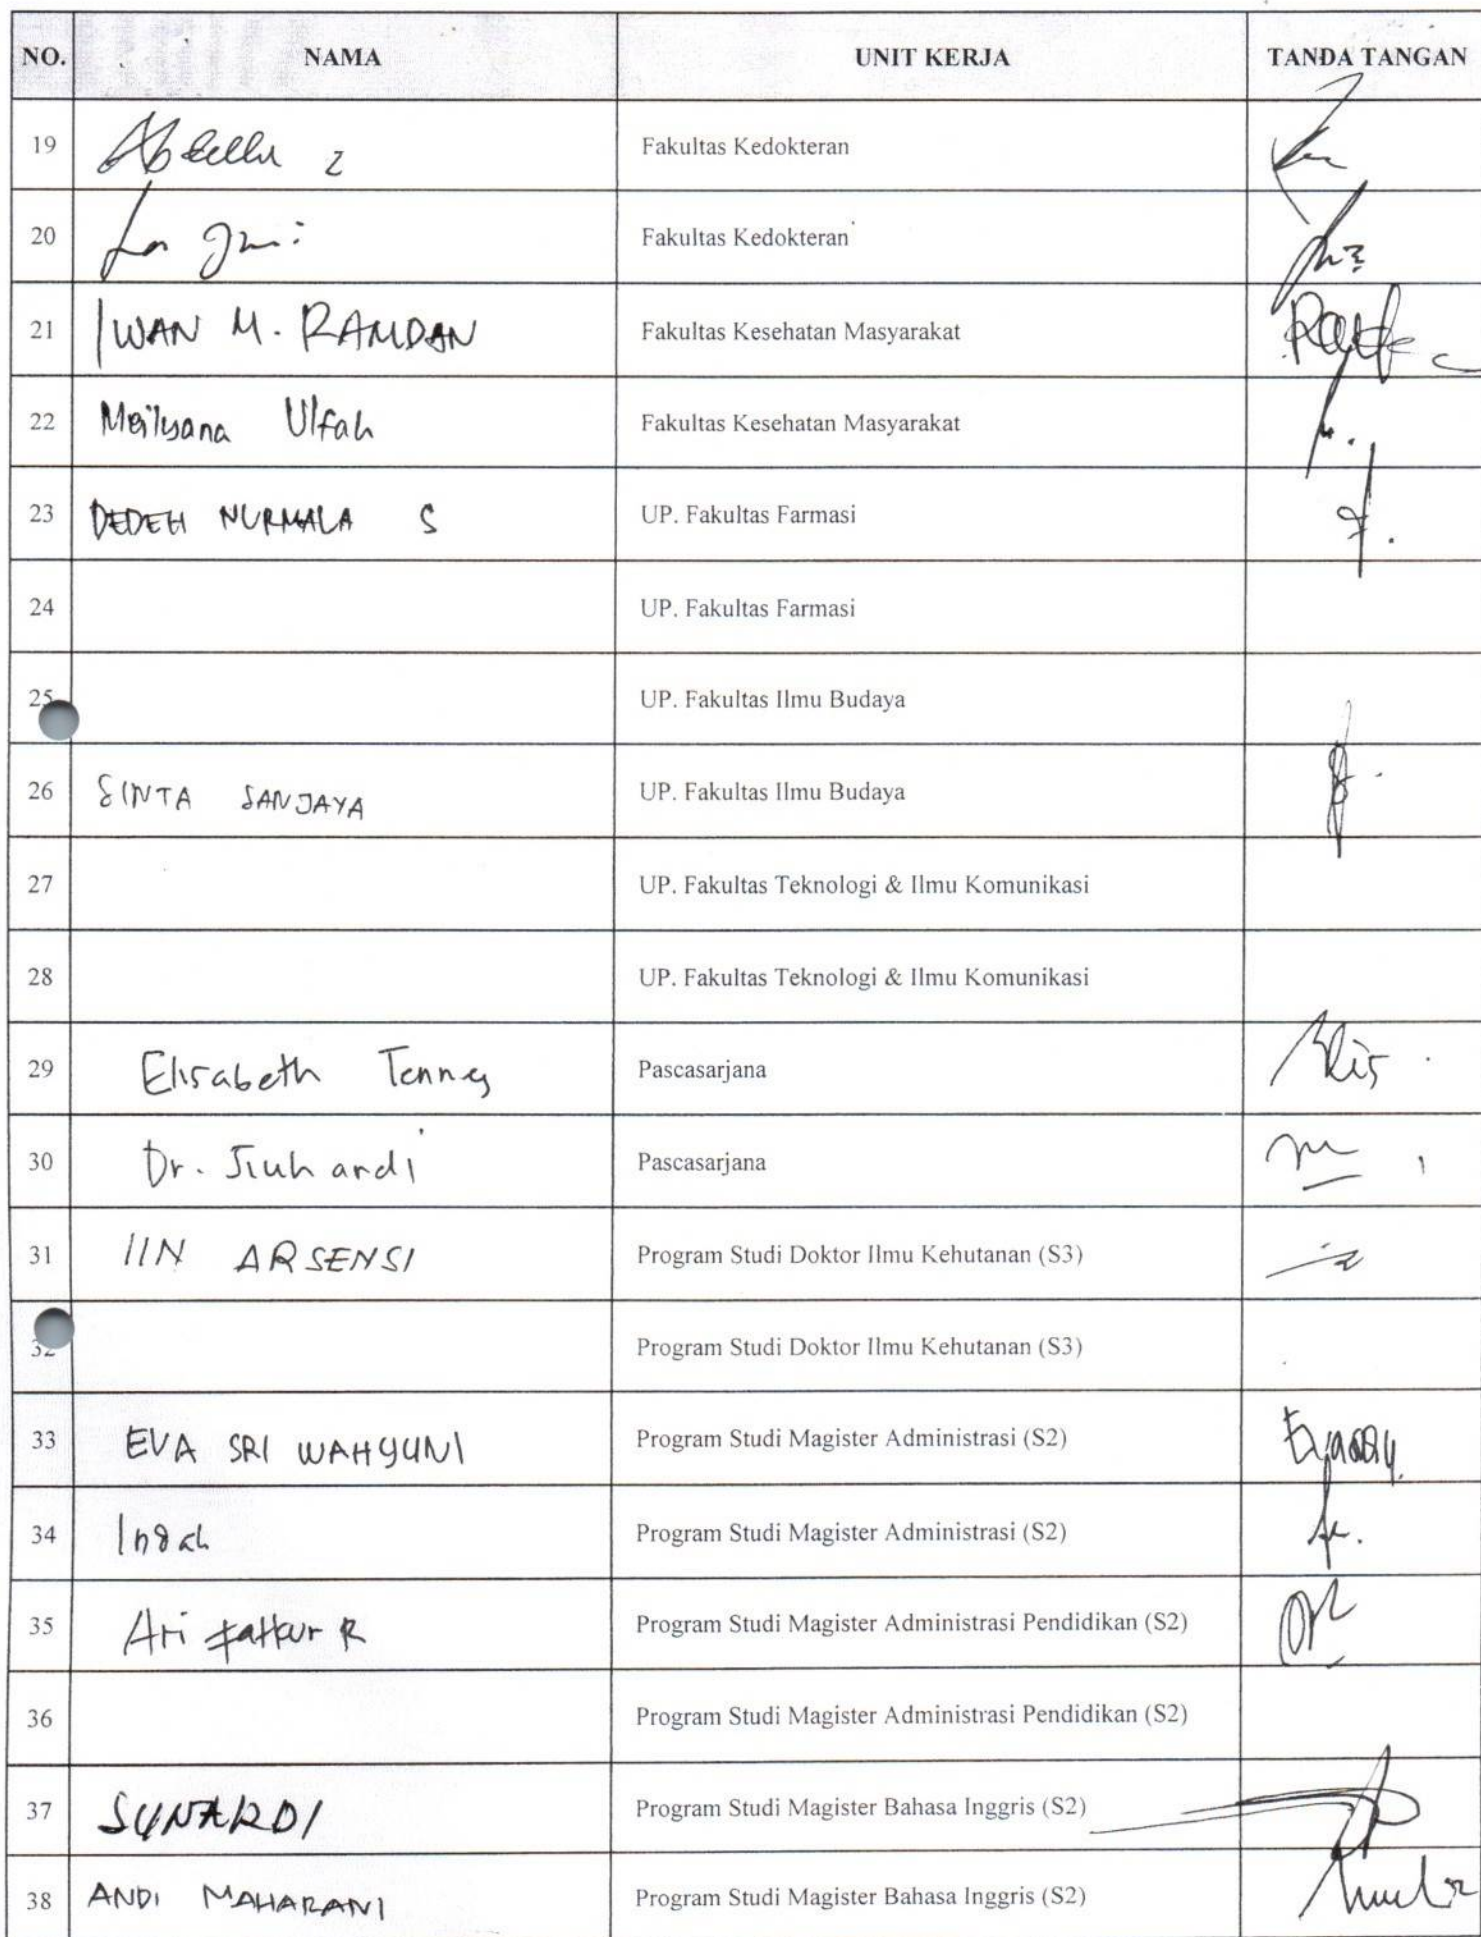 NO. NAMA UNIT KERJA TANDA TANGAN
19 Fakultas Kedokteran
20 Fakultas Kedokteran
21 IWAN M. RAMDAN Fakultas Kesehatan Masyarakat
22 Meilyana Ulfah Fakultas Kesehatan Masyarakat
23 DEDEH NURMALA S UP. Fakultas Farmasi
24 UP. Fakultas Farmasi
25 UP. Fakultas Ilmu Budaya
26 SINTA SANJAYA UP. Fakultas Ilmu Budaya
27 UP. Fakultas Teknologi & Ilmu Komunikasi
28 UP. Fakultas Teknologi & Ilmu Komunikasi
29 Elisabeth Tenney Pascasarjana
30 Dr. Jiuhardi Pascasarjana
31 IIN ARSENSI Program Studi Doktor Ilmu Kehutanan (S3)
32 Program Studi Doktor Ilmu Kehutanan (S3)
33 EVA SRI WAHYUNI Program Studi Magister Administrasi (S2)
34 Indah Program Studi Magister Administrasi (S2)
35 Ari R Program Studi Magister Administrasi Pendidikan (S2)
36 Program Studi Magister Administrasi Pendidikan (S2)
37 SUNARDI Program Studi Magister Bahasa Inggris (S2)
38 ANDI MAHARANI Program Studi Magister Bahasa Inggris (S2)